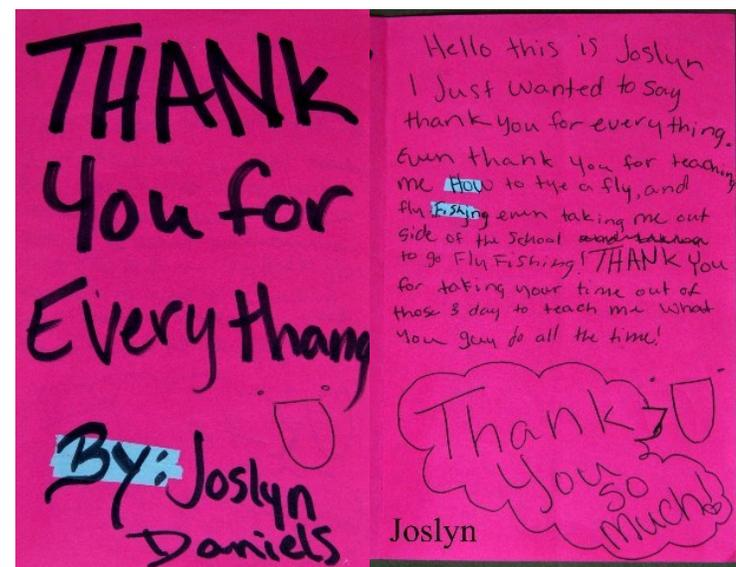 THANK
You for
Everythang
By: Joslyn
Daniels
Hello this is Joslyn
I Just wanted to say
thank you for everything.
Even thank you for teaching
me How to tye a fly, and
fly Fishing even taking me out
side of the School
to go Fly Fishing! THANK You
for taking your time out of
those 3 day to teach me what
you guy do all the time!
Thank
You
so
much!
Joslyn